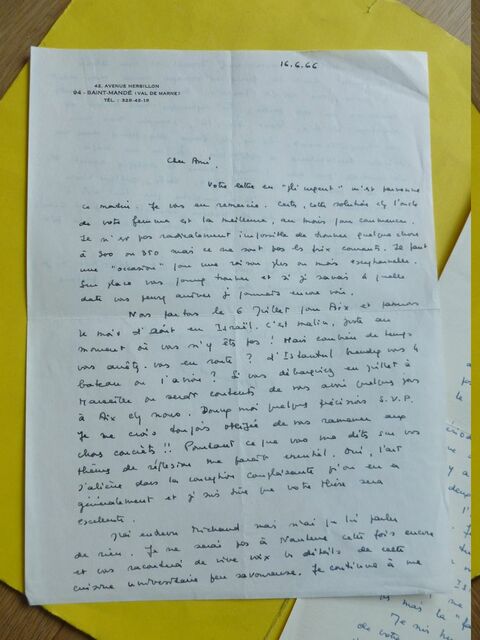 16.6.66
42, AVENUE HERBILLON
94 - SAINT-MANDÉ (VAL DE MARNE)
TÉL. : 328-42-19
Cher Ami,
Votre lettre en "pli urgent" m'est parvenue
ce matin. Je vous en remercie. Certes, cette solution chez l'oncle
de votre femme est la meilleure, au moins pour commencer.
Il n'est pas radicalement impossible de trouver quelque chose
à 300 ou 350 mais ce ne sont pas les prix courants. Il faut
une "occasion" pour une raison plus ou moins exceptionnelle.
Sur place vous pourrez trouver et si je savais à quelle
date vous pensez arriver je pourrais encore voir.
Nous partons le 6 Juillet pour Aix et passons
le mois d'Août en Israël. C'est malin, juste au
moment où vous n'y êtes pas ! Mais combien de temps
vous arrêtez-vous en route ? d'Istanbul prenez vous le
bateau ou l'avion ? Si vous débarquez en juillet à
Marseille on serait contents de vous avoir quelques jours
à Aix chez nous. Donnez moi quelques précisions S.V.P.
Je me crois toujours obligée de vous ramener aux
choses concrètes !! Pourtant ce que vous me dites sur vos
thèmes de réflexion me paraît essentiel. Oui, l'art
s'aliène dans la conception complaisante qu'on en a
généralement et je suis sûre que votre thèse sera
excellente.
J'ai entrevu Michaud mais n'ai pu lui parler
de rien. Je ne serai pas à Nanterre cette fois encore
et vous raconterai de vive voix les détails de cette
cuisine universitaire peu savoureuse. Je continue à me